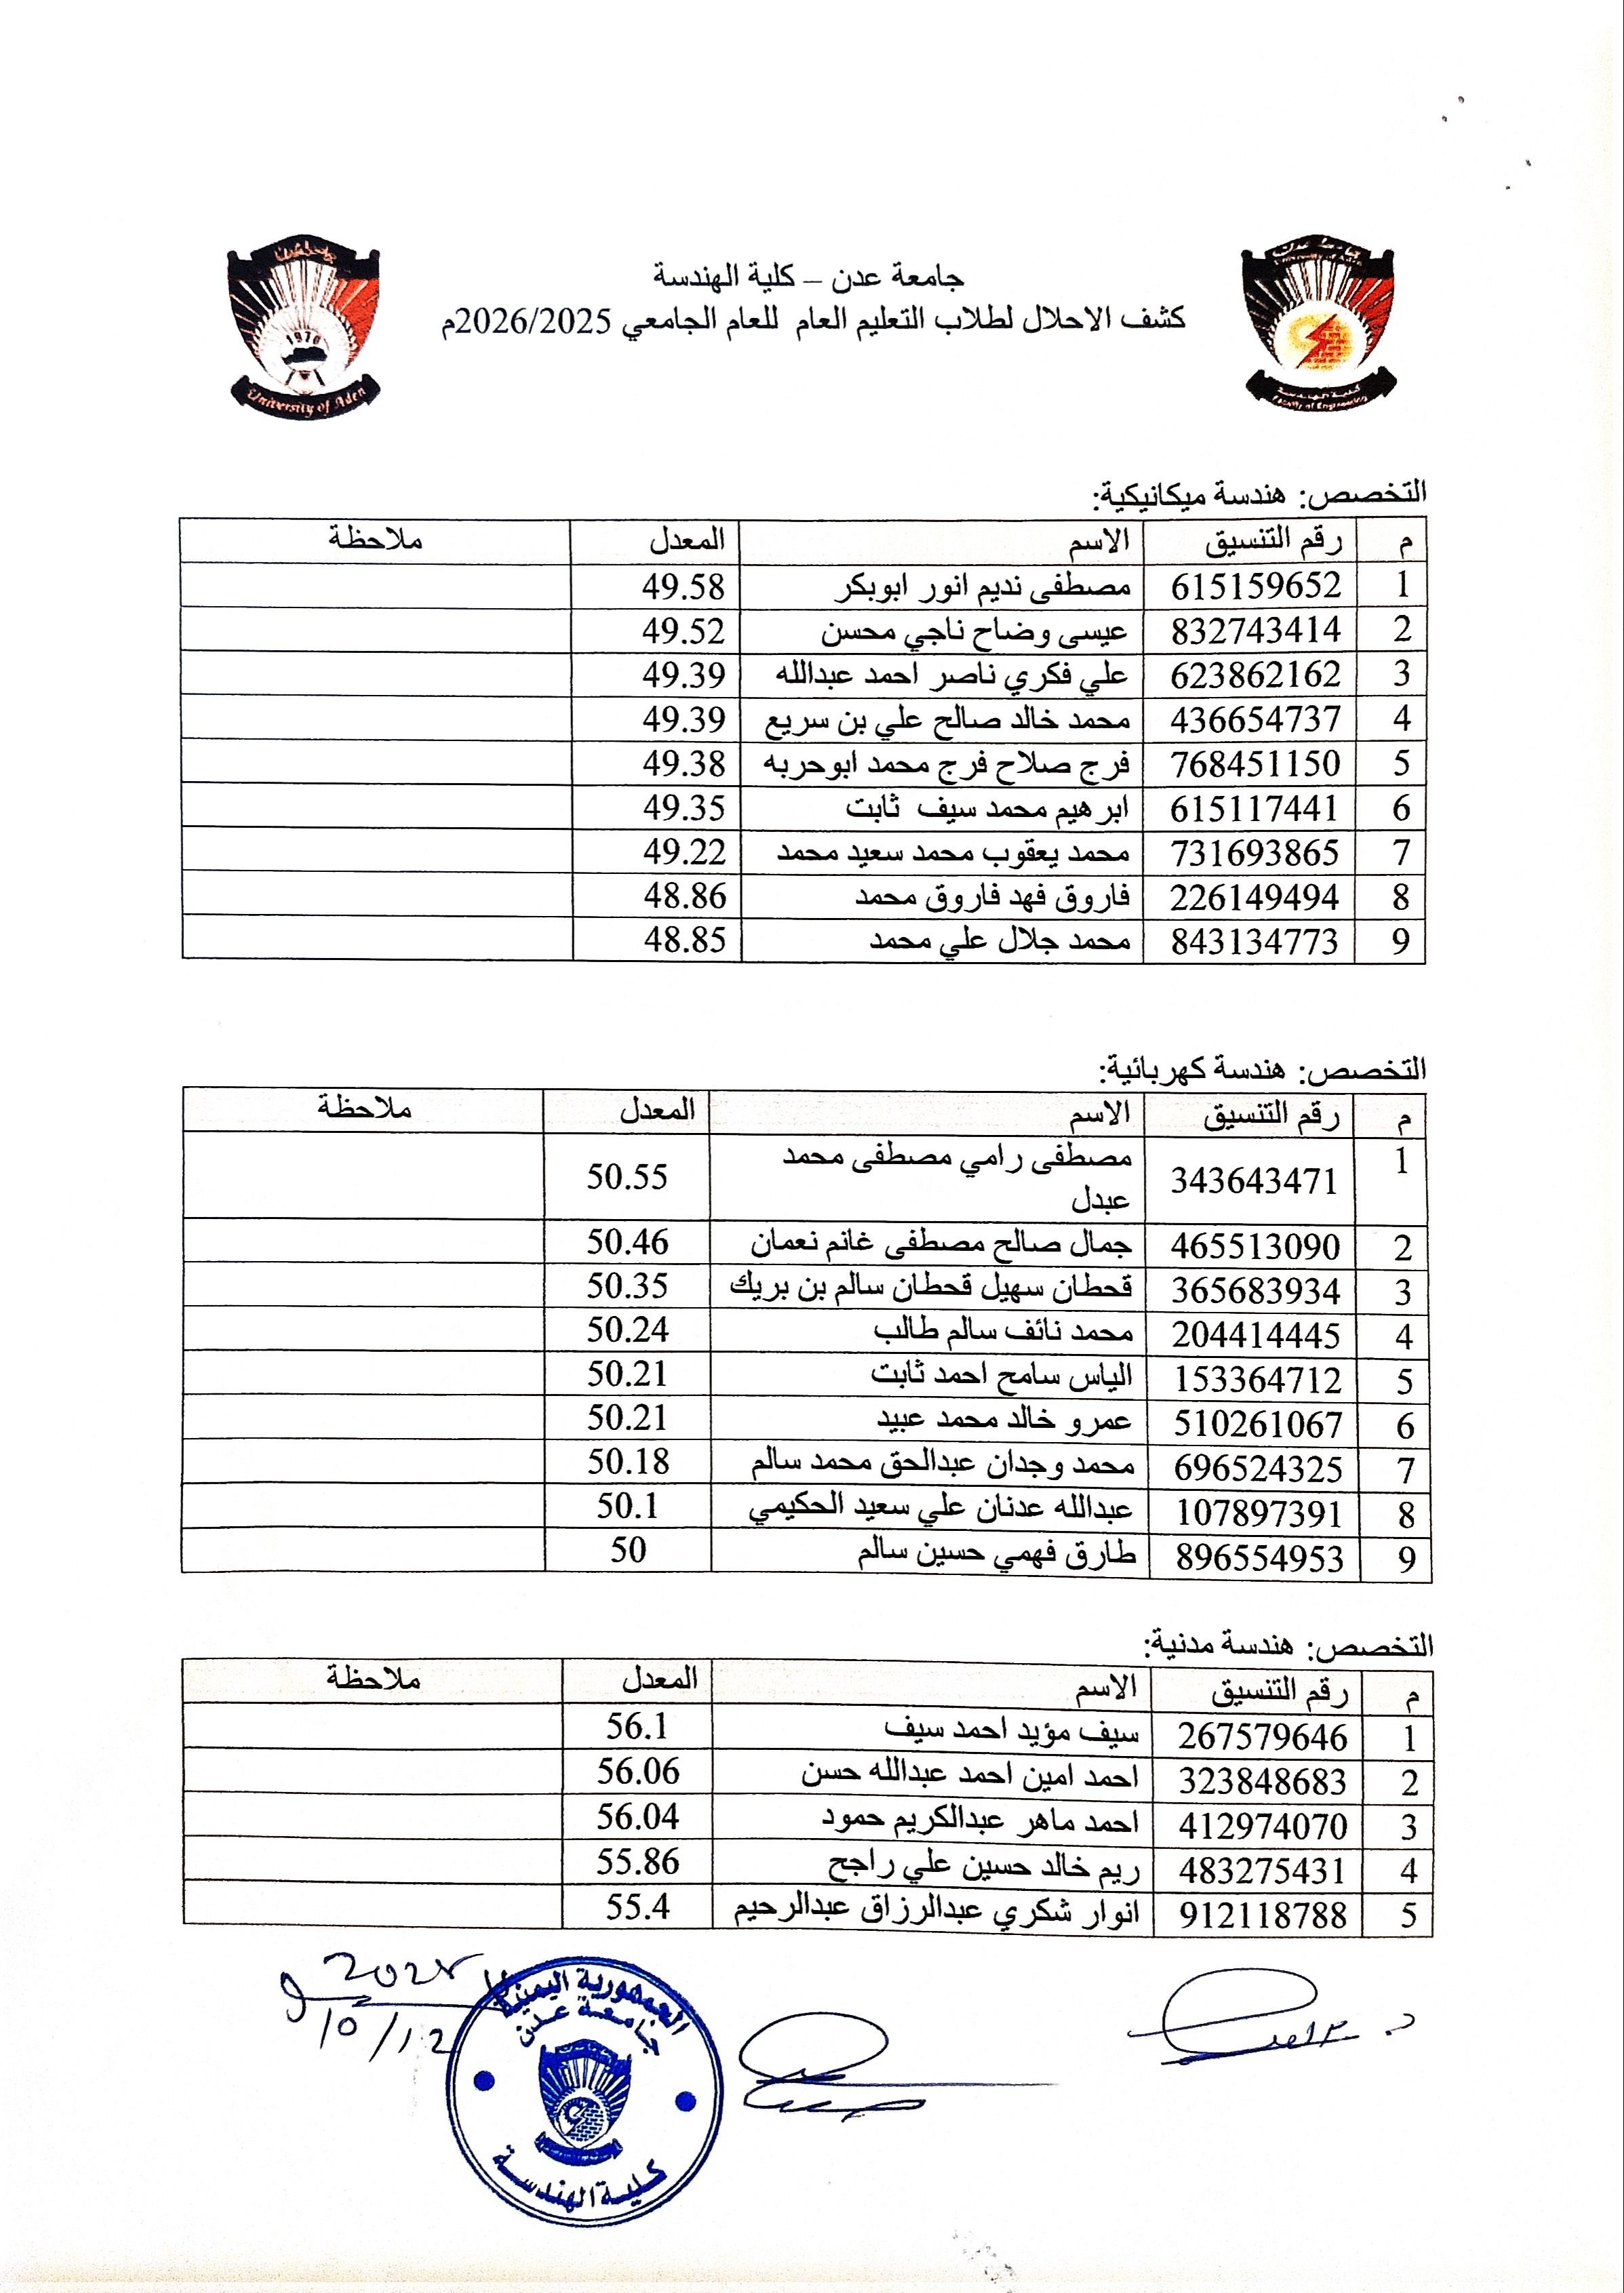 جامعة عدن – كلية الهندسة
كشف الاحلال لطلاب التعليم العام للعام الجامعي 2026/2025م
University of Aden
1970
التخصص: هندسة ميكانيكية:
م رقم التنسيق الاسم المعدل ملاحظة
1 615159652 مصطفى نديم انور ابوبكر 49.58
2 832743414 عيسى وضاح ناجي محسن 49.52
3 623862162 علي فكري ناصر احمد عبدالله 49.39
4 436654737 محمد خالد صالح علي بن سريع 49.39
5 768451150 فرج صلاح فرج محمد ابوحربه 49.38
6 615117441 ابرهيم محمد سيف ثابت 49.35
7 731693865 محمد يعقوب محمد سعيد محمد 49.22
8 226149494 فاروق فهد فاروق محمد 48.86
9 843134773 محمد جلال علي محمد 48.85
التخصص: هندسة كهربائية:
م رقم التنسيق الاسم المعدل ملاحظة
1 343643471 مصطفى رامي مصطفى محمد عبدل 50.55
2 465513090 جمال صالح مصطفى غانم نعمان 50.46
3 365683934 قحطان سهيل قحطان سالم بن بريك 50.35
4 204414445 محمد نائف سالم طالب 50.24
5 153364712 الياس سامح احمد ثابت 50.21
6 510261067 عمرو خالد محمد عبيد 50.21
7 696524325 محمد وجدان عبدالحق محمد سالم 50.18
8 107897391 عبدالله عدنان علي سعيد الحكيمي 50.1
9 896554953 طارق فهمي حسين سالم 50
التخصص: هندسة مدنية:
م رقم التنسيق الاسم المعدل ملاحظة
1 267579646 سيف مؤيد احمد سيف 56.1
2 323848683 احمد امين احمد عبدالله حسن 56.06
3 412974070 احمد ماهر عبدالكريم حمود 56.04
4 483275431 ريم خالد حسين علي راجح 55.86
5 912118788 انوار شكري عبدالرزاق عبدالرحيم 55.4
الجمهورية اليمنية
جامعة عدن
كلية الهندسة
10/12